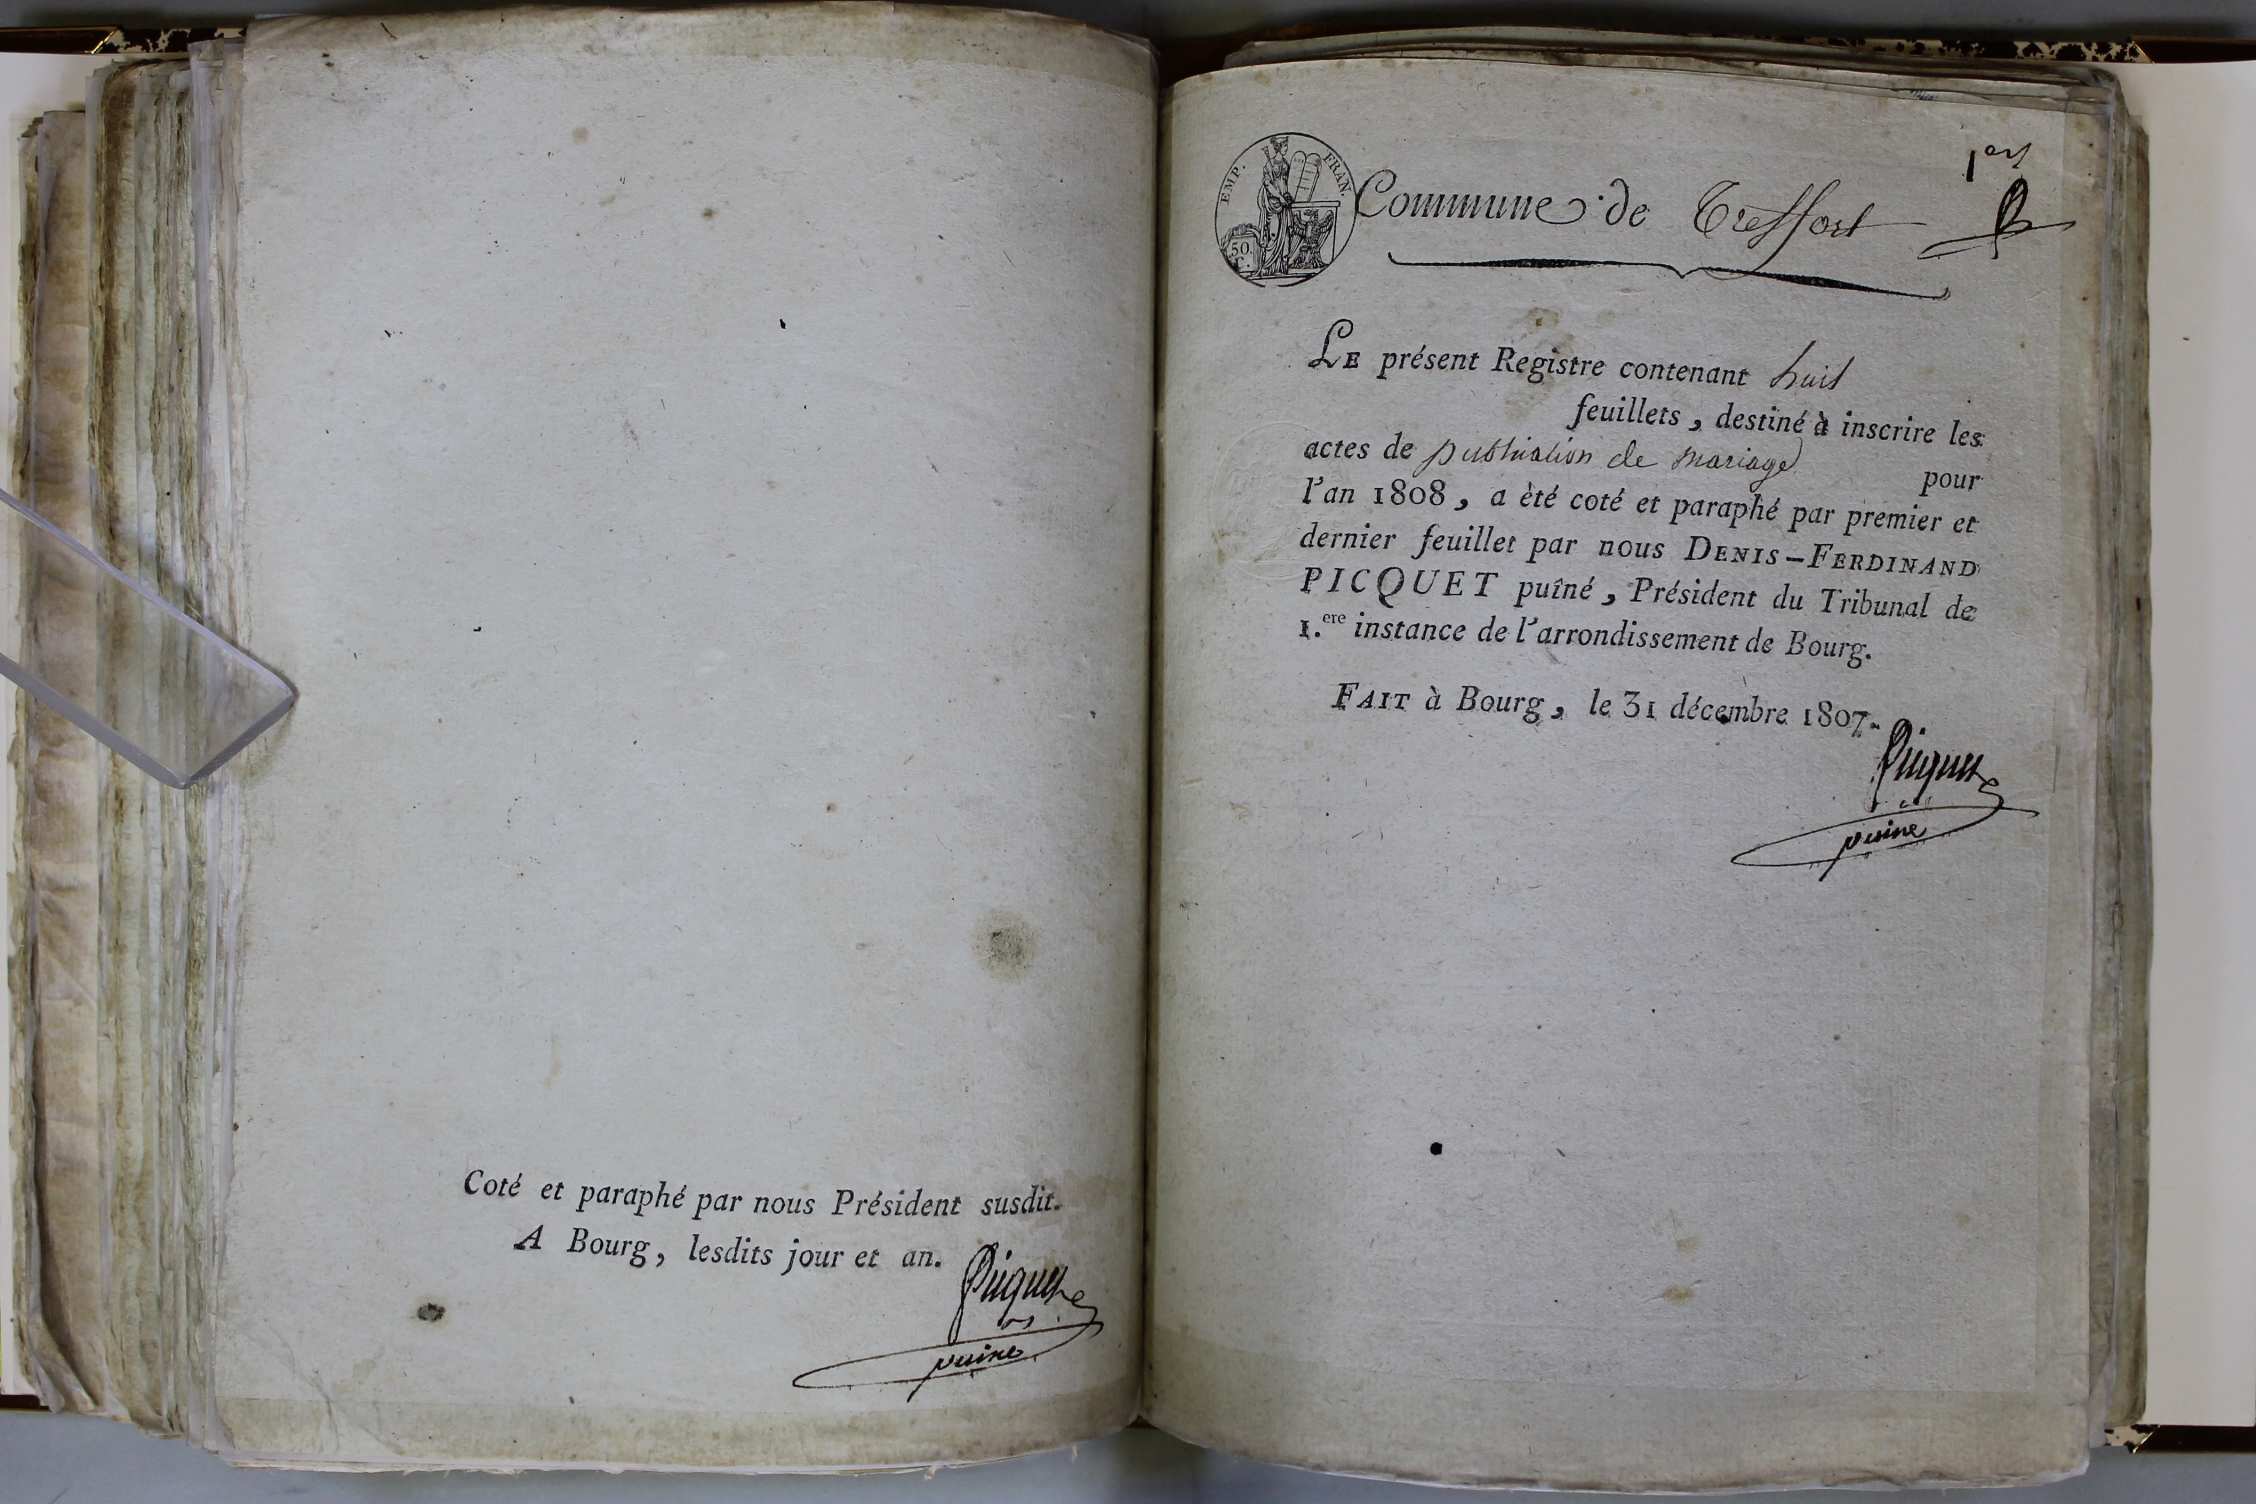 Coté et paraphé par nous Président susdit.
A Bourg, lesdits jour et an.
Picquet
puiné
1er
EMP. FRAN.
50 c.
Commune de Treffort
LE présent Registre contenant huit
feuillets, destiné à inscrire les
actes de publication de mariage pour
l'an 1808, a èté coté et paraphé par premier et
dernier feuillet par nous DENIS-FERDINAND
PICQUET puîné, Président du Tribunal de
1.ere instance de l'arrondissement de Bourg.
FAIT à Bourg, le 31 décembre 1807.
Picquet
puiné